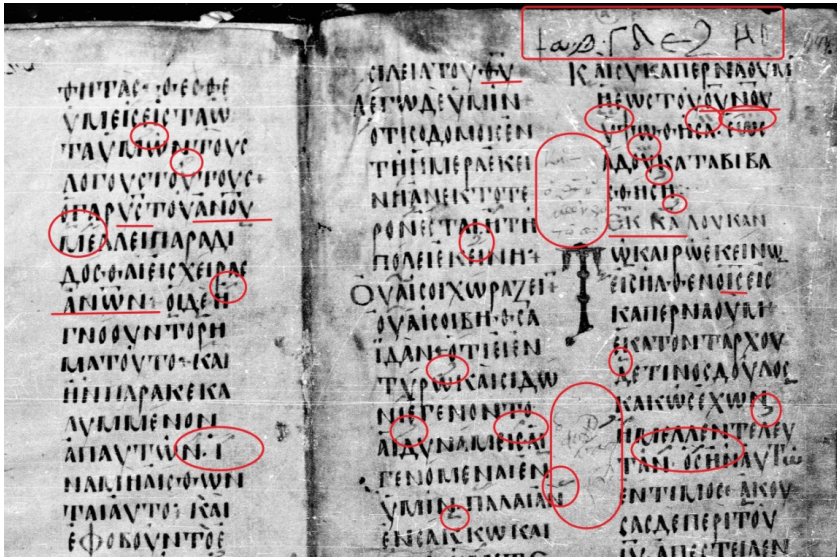 ΦΗΤΑΣ·ΘΕΣΘΕ
ΥΜΕΙΣΕΙΣΤΑΩ
ΤΑΥΜΩΝΤΟΥΣ
ΛΟΓΟΥΣΤΟΥΤΟΥΣ+
ΟΓΑΡΥΣΤΟΥΑΝΟΥ
ΜΕΛΛΕΙΠΑΡΑΔΙ
ΔΟΣΘΑΙΕΙΣΧΕΙΡΑΣ
ΑΝΩΝ+ΟΙΔΕΗ
ΓΝΟΟΥΝΤΟΡΗ
ΜΑΤΟΥΤΟ+ΚΑΙ
ΗΝΠΑΡΑΚΕΚΑ
ΛΥΜΜΕΝΟΝ
ΑΠΑΥΤΩΝ·Ι
ΝΑΜΗΑΙΣΘΩΝ
ΤΑΙΑΥΤΟ+ΚΑΙ
ΕΦΟΒΟΥΝΤΟΕ
ΣΙΛΕΙΑΤΟΥΘΥ
ΛΕΓΩΔΕΥΜΙΝ+
ΟΤΙΣΟΔΟΜΟΙΣΕΝ
ΤΗΗΜΕΡΑΕΚΕΙ
ΝΗΑΝΕΚΤΟΤΕ
ΡΟΝΕΣΤΑΙΗΤΗ
ΠΟΛΕΙΕΚΕΙΝΗ+
ΟΥΑΙΣΟΙΧΩΡΑΖΕΙ+
ΟΥΑΙΣΟΙΒΗΘΣΑ
ΙΔΑΝ+ΟΤΙΕΙΕΝ
ΤΥΡΩΚΑΙΣΙΔΩ
ΝΙΕΓΕΝΟΝΤΟ
ΑΙΔΥΝΑΜΕΙΣΑΙ
ΓΕΝΟΜΕΝΑΙΕΝ
ΥΜΙΝΠΑΛΑΙΑΝ
ΕΝΣΑΚΚΩΚΑΙ
ΚΑΙΣΥΚΑΠΕΡΝΑΟΥΜ
ΗΕΩΣΤΟΥΟΥΝΟΥ
ΥΨΩΘΗΣΑ·ΕΩΣ
ΑΔΟΥΚΑΤΑΒΙΒΑ
ΣΘΗΣΗ
ΕΚ ΚΑ ΛΟΥΚΑΝ
ΤΩΚΑΙΡΩΕΚΕΙΝΩ
ΕΙΣΗΛΘΕΝΟΙΣΕΙΣ
ΚΑΠΕΡΝΑΟΥΜ+
ΕΚΑΤΟΝΤΑΡΧΟΥ
ΔΕΤΙΝΟΣΔΟΥΛΟΣ
ΚΑΚΩΣΕΧΩΝ
ΗΜΕΛΛΕΝΤΕΛΕΥ
ΤΑΝ·ΟΣΗΝΑΥΤΩ
ΕΝΤΙΜΟΣ·ΑΚΟΥ
ΣΑΣΔΕΠΕΡΙΤΟΥ
ΙΥΑΠΕΣΤΕΙΛΕΝ